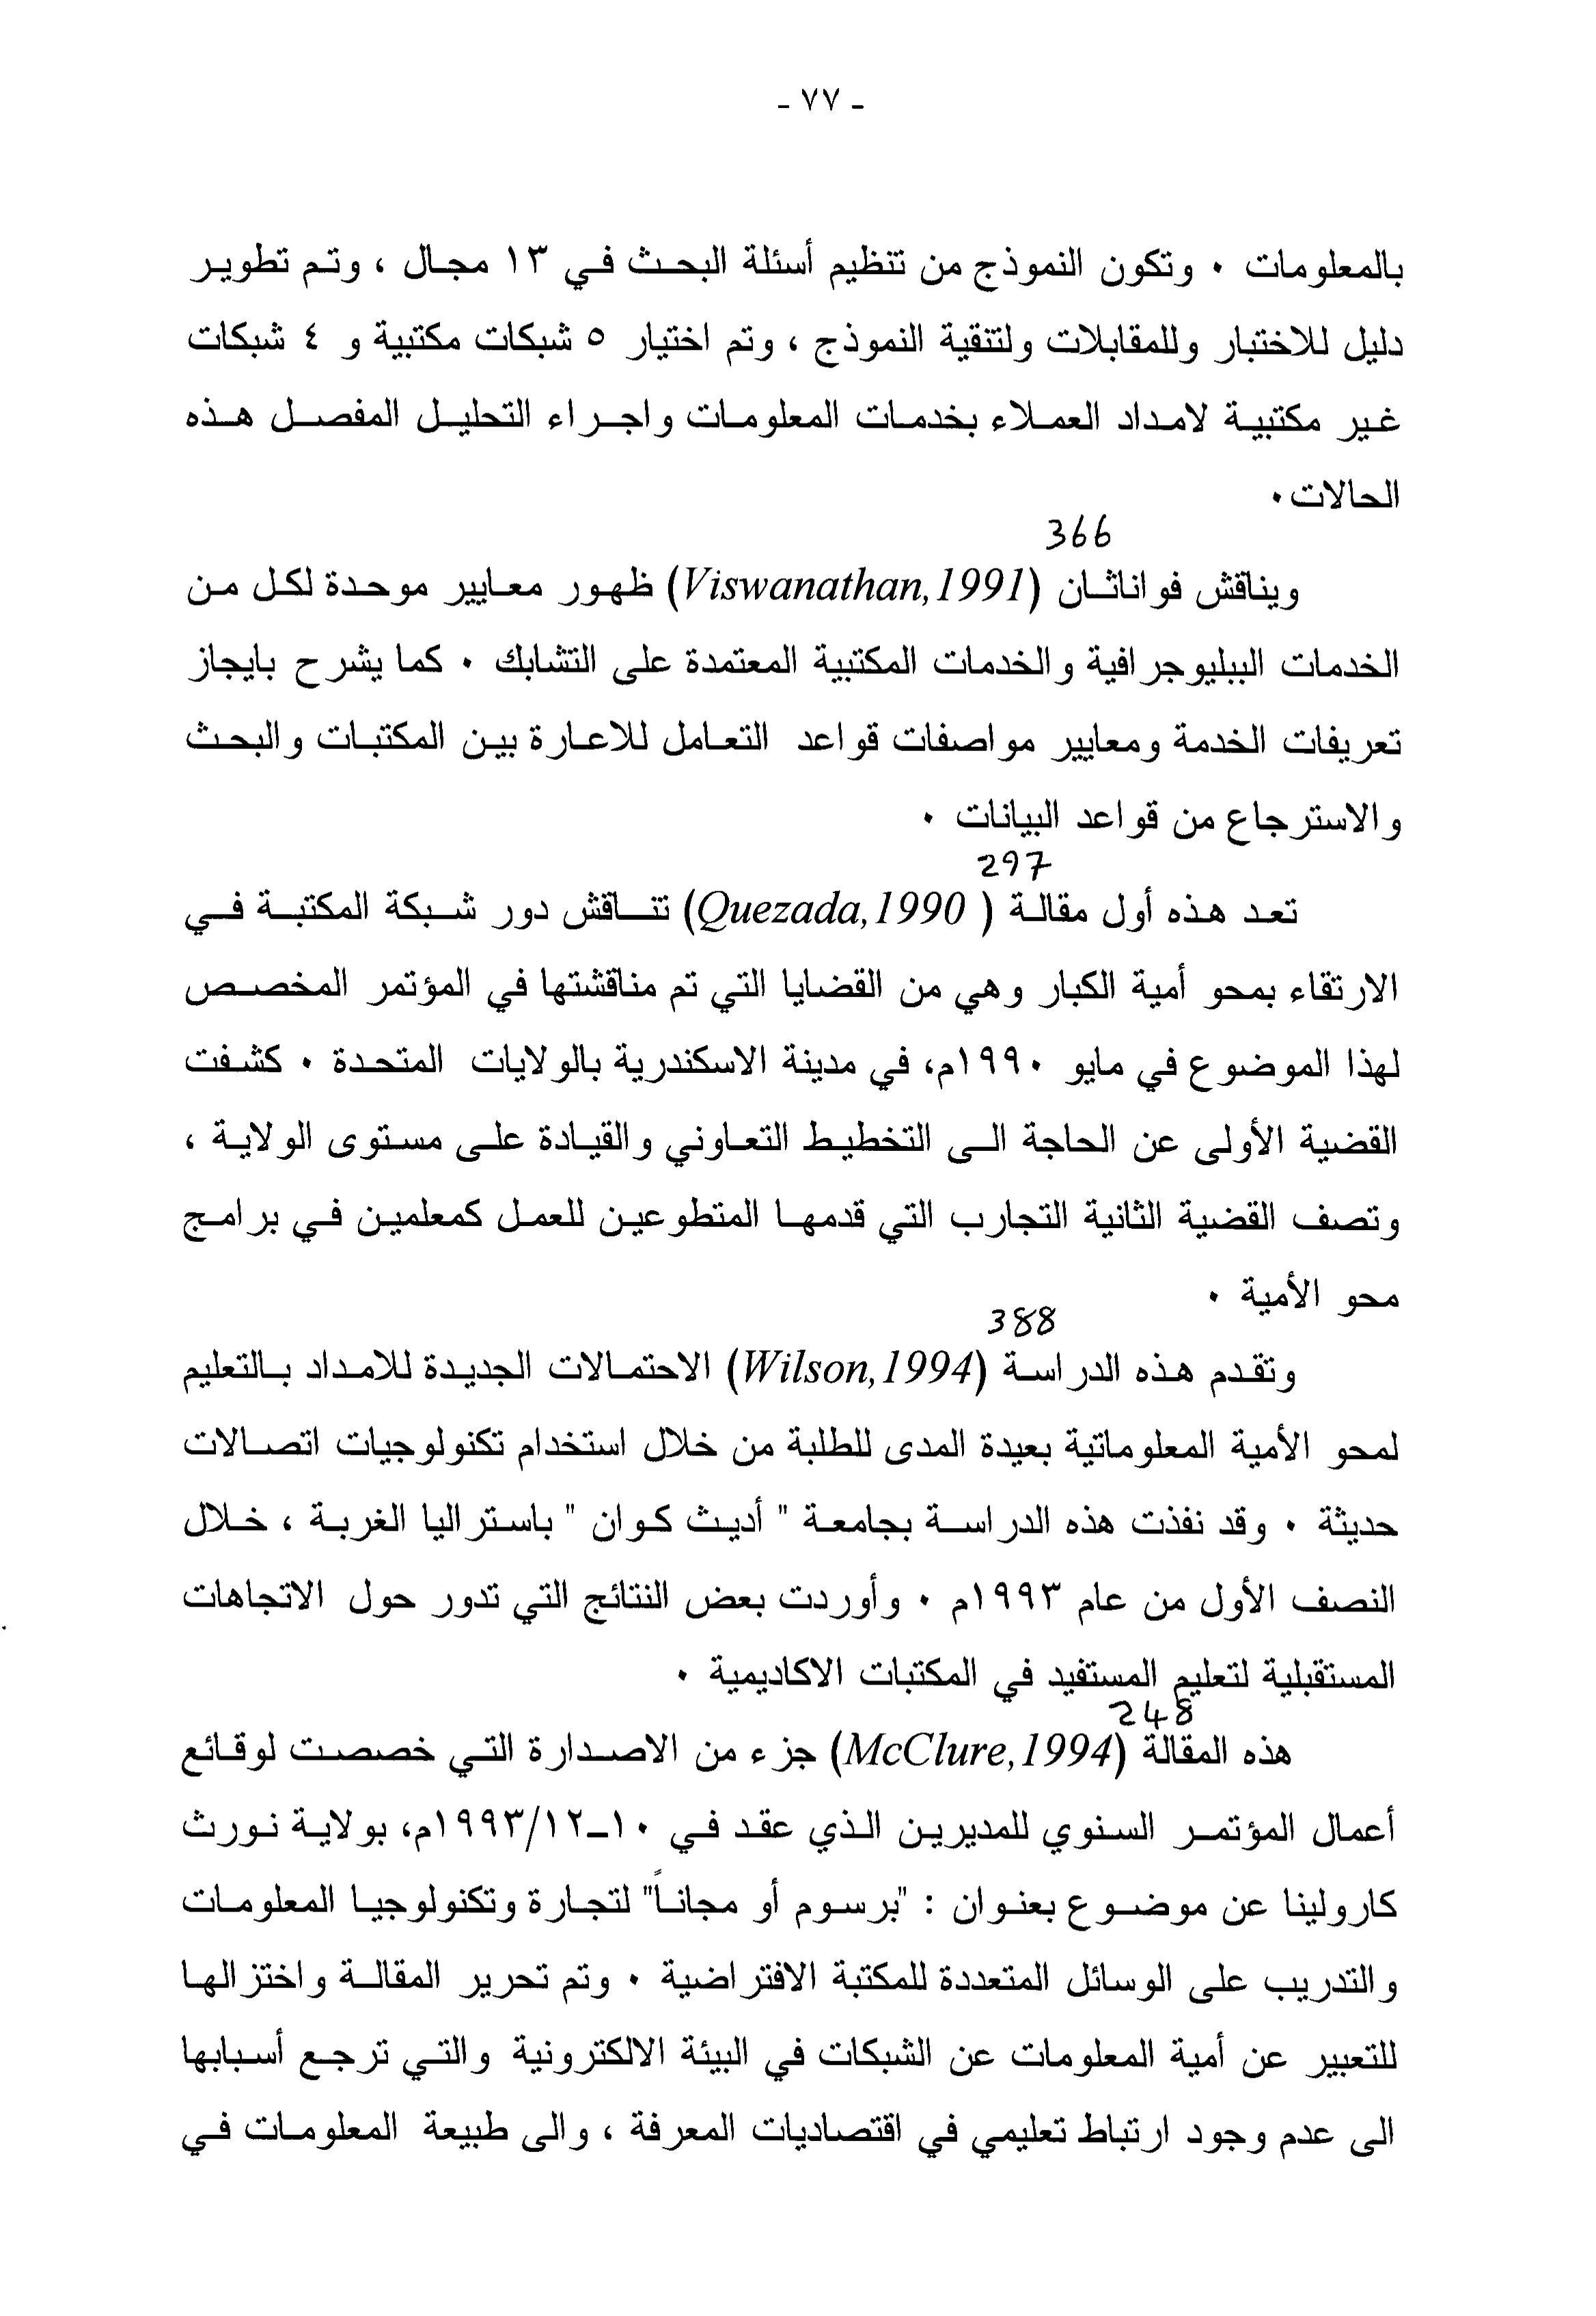 - ٧٧ -
بالمعلومات ٠ وتكون النموذج من تنظيم أسئلة البحث في ١٣ مجال ، وتم تطوير
دليل للاختبار وللمقابلات ولتنقية النموذج ، وتم اختيار ٥ شبكات مكتبية و ٤ شبكات
غير مكتبية لامداد العملاء بخدمات المعلومات واجراء التحليل المفصل هذه
الحالات٠
366
ويناقش فواناثان (Viswanathan,1991) ظهور معايير موحدة لكل من
الخدمات الببليوجرافية والخدمات المكتبية المعتمدة على التشابك ٠ كما يشرح بايجاز
تعريفات الخدمة ومعايير مواصفات قواعد التعامل للاعارة بين المكتبات والبحث
والاسترجاع من قواعد البيانات ٠
297
تعد هذه أول مقالة (Quezada,1990 ) تناقش دور شبكة المكتبة في
الارتقاء بمحو أمية الكبار وهي من القضايا التي تم مناقشتها في المؤتمر المخصص
لهذا الموضوع في مايو ١٩٩٠م، في مدينة الاسكندرية بالولايات المتحدة ٠ كشفت
القضية الأولى عن الحاجة الى التخطيط التعاوني والقيادة على مستوى الولاية ،
وتصف القضية الثانية التجارب التي قدمها المتطوعين للعمل كمعلمين في برامج
محو الأمية ٠
388
وتقدم هذه الدراسة (Wilson,1994) الاحتمالات الجديدة للامداد بالتعليم
لمحو الأمية المعلوماتية بعيدة المدى للطلبة من خلال استخدام تكنولوجيات اتصالات
حديثة ٠ وقد نفذت هذه الدراسة بجامعة " أديث كوان " باستراليا الغربة ، خلال
النصف الأول من عام ١٩٩٣م ٠ وأوردت بعض النتائج التي تدور حول الاتجاهات
المستقبلية لتعليم المستفيد في المكتبات الاكاديمية ٠
248
هذه المقالة (McClure,1994) جزء من الاصدارة التي خصصت لوقائع
أعمال المؤتمر السنوي للمديرين الذي عقد في ١٠-١٩٩٣/١٢م، بولاية نورث
كارولينا عن موضوع بعنوان : "برسوم أو مجاناً" لتجارة وتكنولوجيا المعلومات
والتدريب على الوسائل المتعددة للمكتبة الافتراضية ٠ وتم تحرير المقالة واختزالها
للتعبير عن أمية المعلومات عن الشبكات في البيئة الالكترونية والتي ترجع أسبابها
الى عدم وجود ارتباط تعليمي في اقتصاديات المعرفة ، والى طبيعة المعلومات في